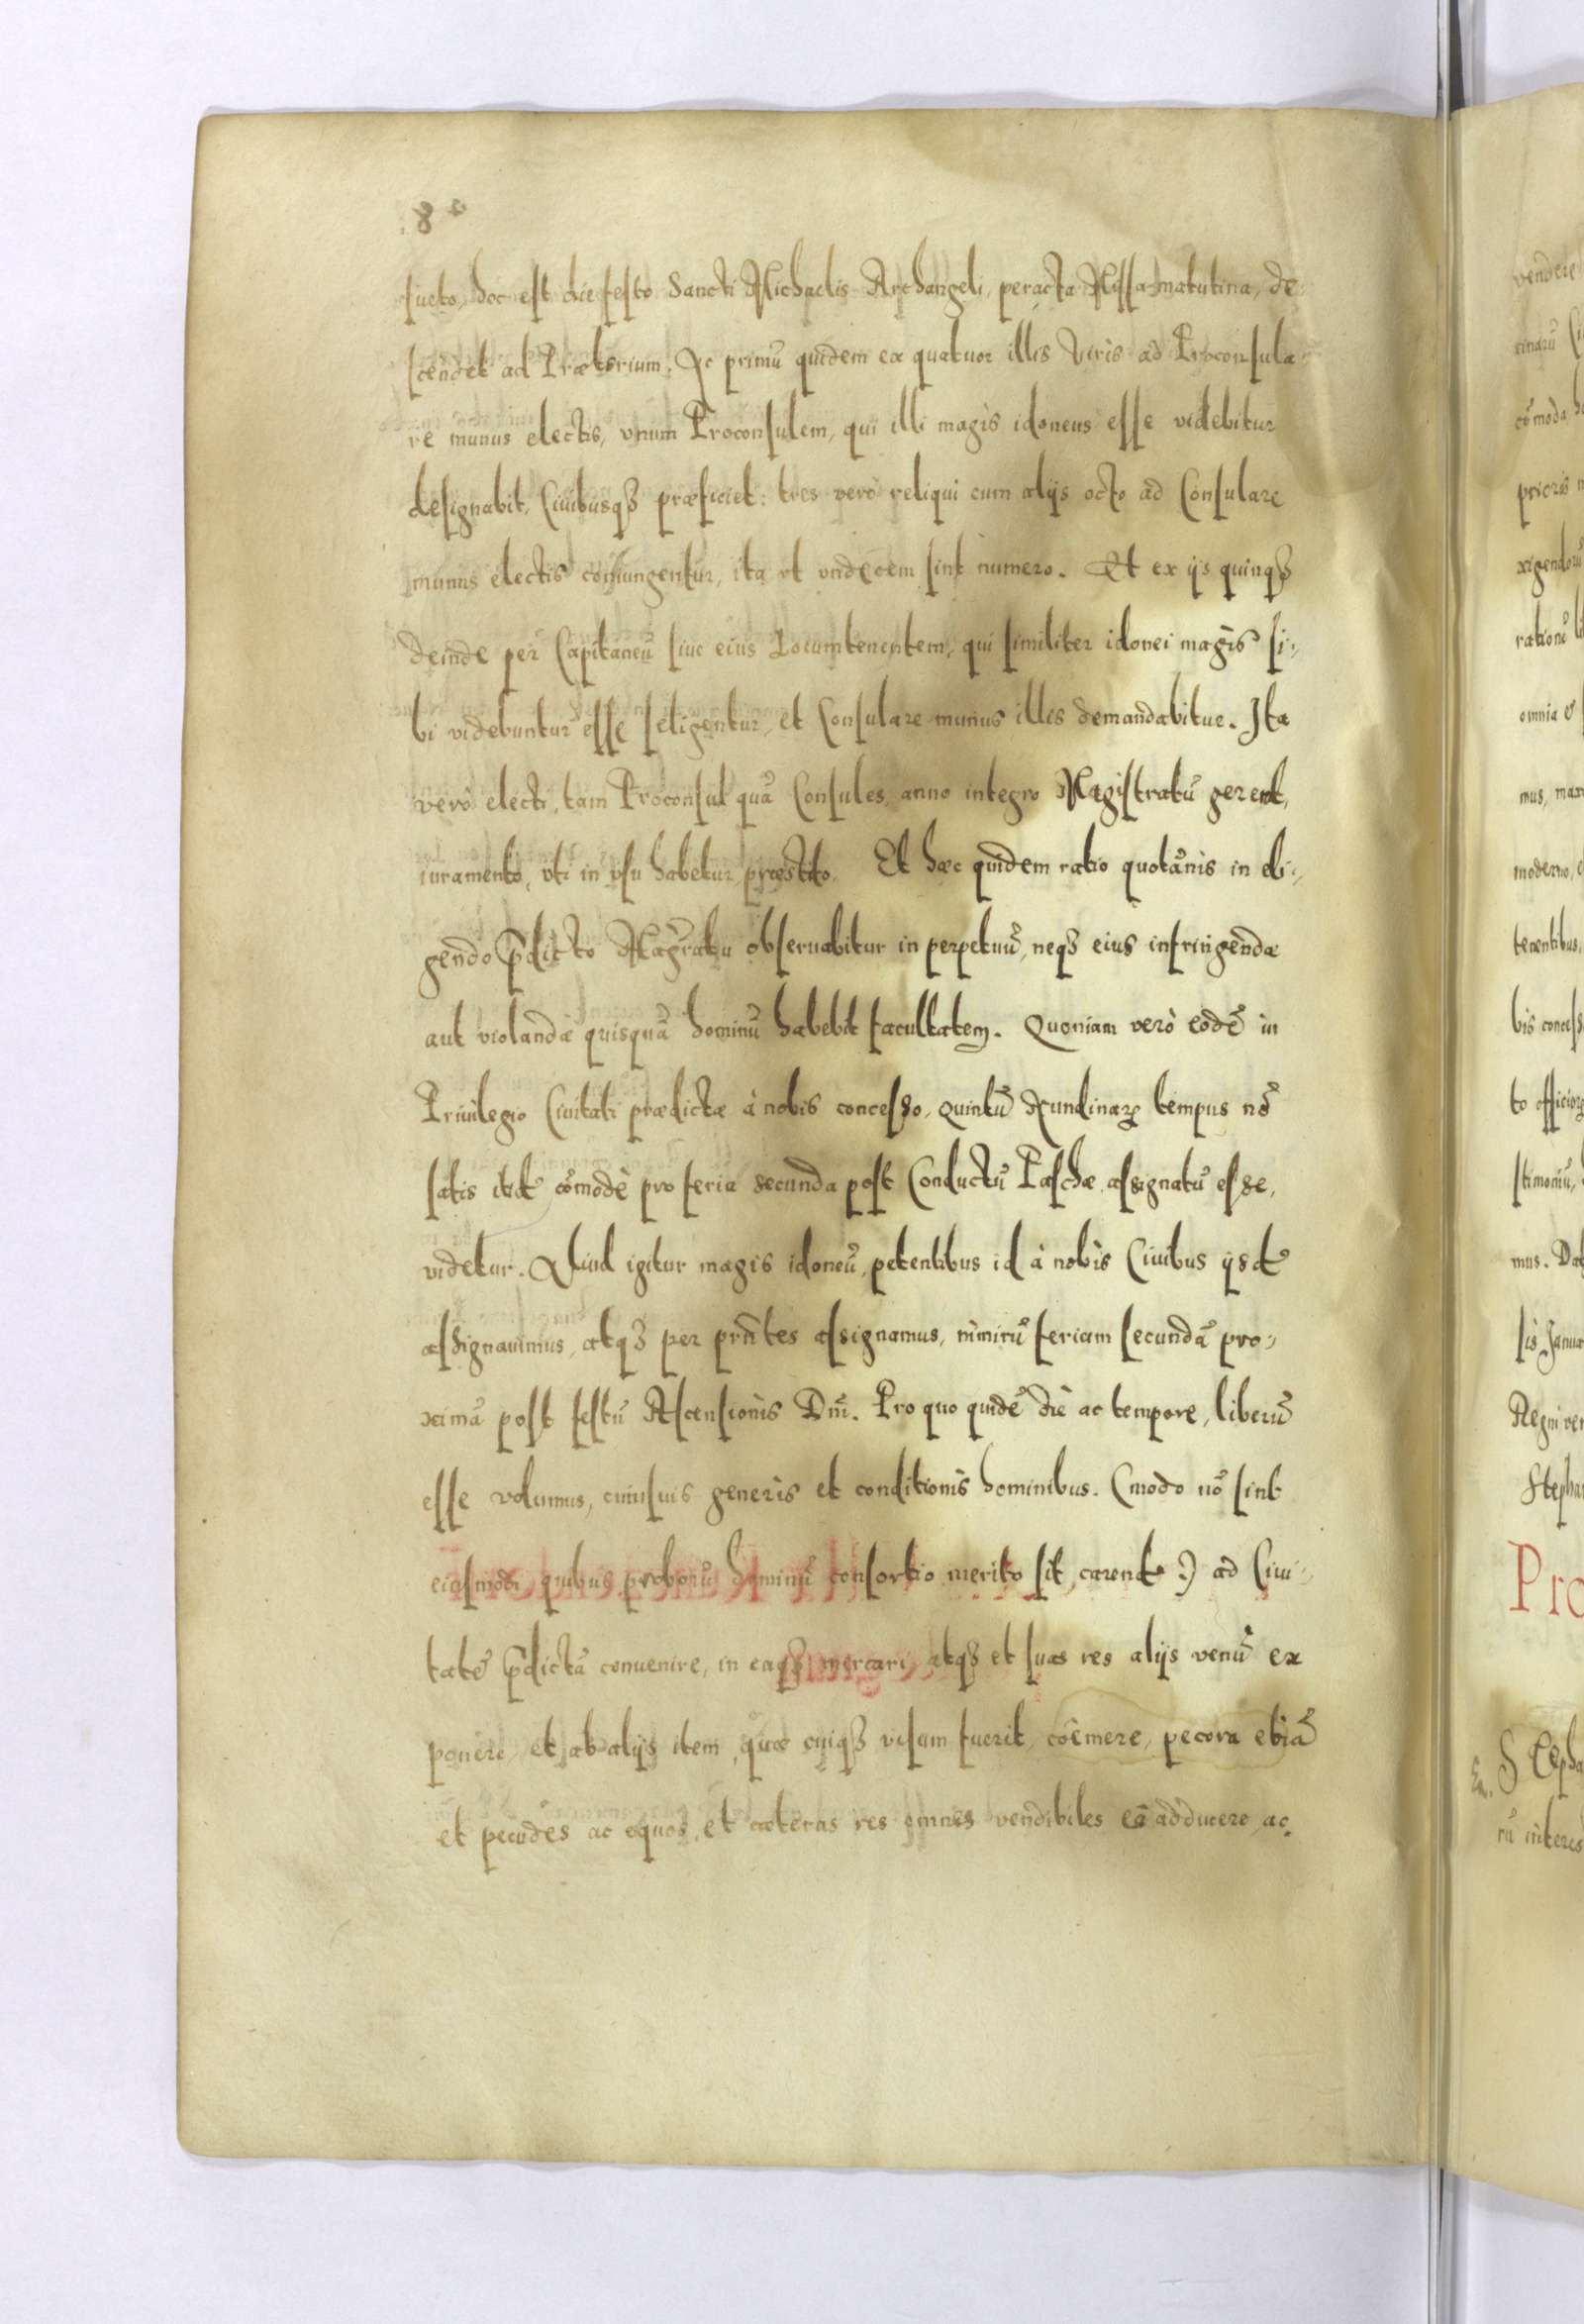 8
sueto, hoc est die festo Sancti Michaelis Archangeli, peracta Missa matutina, de
scendet ad Prætorium. Ac primũ quidem ex quatuor illis Viris ad Proconsula-
re munus electis, vnum Proconsulem, qui illi magis idoneus esse videbitur
designabit, Ciuibusq̃ præficiet: tres verò reliqui cum alijs octo ad Consulare
munus electis coniungentur, ita vt vndecem sint numero. Et ex ijs quinq̃
deinde per Capitaneũ siue eius Locumtenentem, qui similiter idonei magis si-
bi videbuntur esse seligentur, et Consulare munus illis demandabitur. Ita
verò electi, tam Proconsul quã Consules, anno integro Magistratũ gerent,
iuramento, vti in vsu habetur, præstito. Et hæc quidem ratio quotãnis in eli-
gendo p̃dicto Mag̃ratu obseruabitur in perpetuũ, neq̃ eius infringendæ
aut violandæ quisquã hominũ habebit facultatem. Quoniam verò eodẽ in
Priuilegio Ciuitati prædictæ à nobis concesso, quintũ Nundinaꝝ tempus nõ
satis itidẽ cõmodè pro feria secunda post Conductũ Paschæ assignatũ esse,
videtur. Aliud igitur magis idoneũ, petentibus id à nobis Ciuibus ijsdẽ
assignauimus, atq̃ per prñtes assignamus, nimirũ feriam secundã pro-
ximã post festũ Ascensionis Dñi. Pro quo quidẽ die ac tempore, liberũ
esse volumus, cuiusuis generis et conditionis hominibus. (modo nõ sint
eiusmodi quibus proborũ hominũ consortio merito sit carendũ) ad Ciui-
tatẽ p̃dictã conuenire, in eaq̃ mercari, atq̃ et suas res alijs venũ ex
ponere, et ab alijs item, quæ cuiq̃ visum fuerit, coëmere, pecora etiã
et pecudes ac equos, et cæteras res omnes vendibiles eã adducere, ac